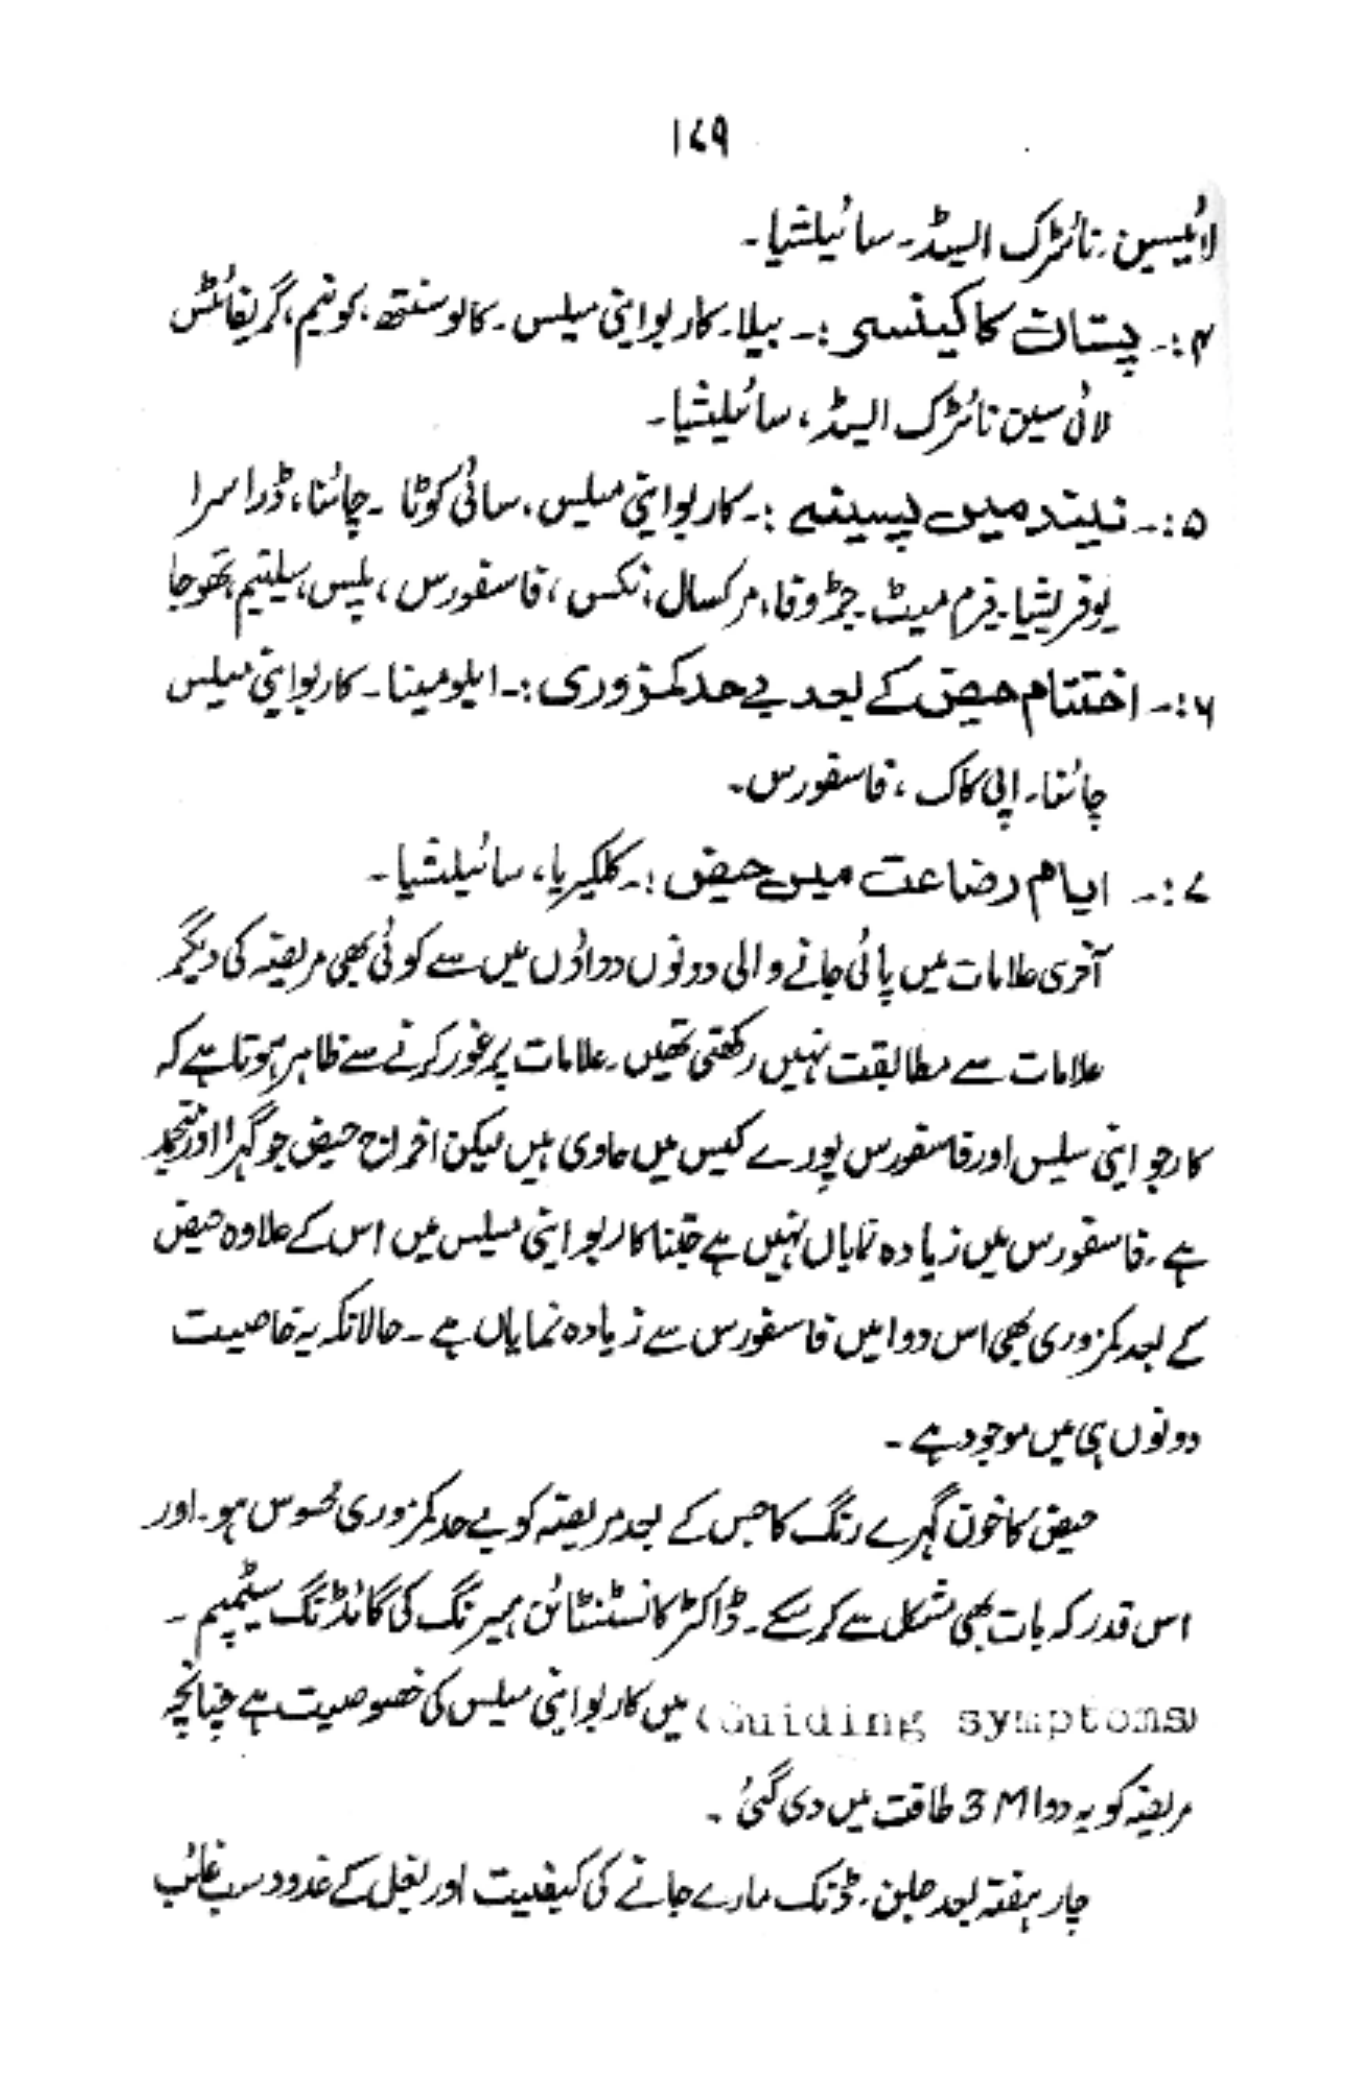 ۱۷۹
لائیسین۔ نائٹرک ایسڈ۔ سائیلیشیا۔
۴:۔ پستان کا کینسر:۔ بیلا۔ کاربواینی میلس۔ کالوسنتھ، کونیم، گریفائٹس
لائی سین نائٹرک ایسڈ، سائیلیشیا۔
۵:۔ نیند میں پسینہ:۔ کاربواینی میلس، سائی کوٹا۔ چائنا، ڈراسرا
یوفریشیا۔ فیرم میٹ۔ جٹروفا، مرکسال، نکس، فاسفورس، پلس، سیلینیم، تھوجا
۶:۔ اختتام حیض کے بعد بے حد کمزوری:۔ ایلومینا۔ کاربواینی میلس
چائنا۔ اپی کاک، فاسفورس۔
۷:۔ ایام رضاعت میں حیض:۔ کلکیریا، سائیلیشیا۔
آخری علامات میں پائی جانے والی دونوں دواؤں میں سے کوئی بھی مریضہ کی دیگر
علامات سے مطابقت نہیں رکھتی تھیں۔ علامات پر غور کرنے سے ظاہر ہوتا ہے کہ
کاربو اینی میلس اور فاسفورس پورے کیس میں حاوی ہیں لیکن اخراج حیض جو گہرا اور منجمد
ہے۔ فاسفورس میں زیادہ نمایاں نہیں ہے جتنا کاربو اینی میلس میں اس کے علاوہ حیض
کے بعد کمزوری بھی اس دوا میں فاسفورس سے زیادہ نمایاں ہے۔ حالانکہ یہ خاصیت
دونوں ہی میں موجود ہے۔
حیض کا خون گہرے رنگ کا جس کے بعد مریضہ کو بے حد کمزوری محسوس ہو۔ اور
اس قدر کہ بات بھی مشکل سے کر سکے۔ ڈاکٹر کانسٹنٹائن ہیرنگ کی گائڈنگ سیمپٹم۔
(Guiding symptoms) میں کاربو اینی میلس کی خصوصیت ہے چنانچہ
مریضہ کو یہ دوا 3 M طاقت میں دی گئی۔
چار ہفتہ بعد جلن۔ ڈنک مارے جانے کی کیفیت اور بغل کے غدود سب غائب